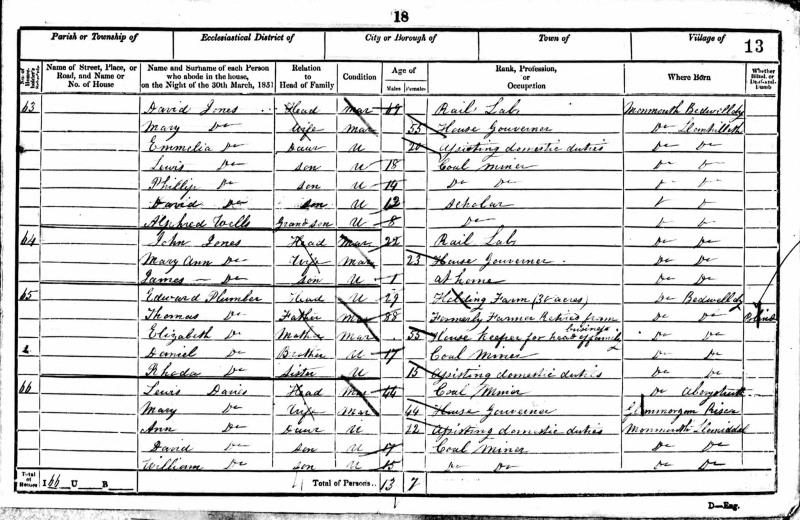 18
Parish or Township of Ecclesiastical District of City or Borough of Town of Village of 13
Name of Street, Place, or Road, and Name or No. of House
Name and Surname of each Person who abode in the house, on the Night of the 30th March, 1851
Relation to Head of Family
Condition
Age of
Males Females
Rank, Profession, or Occupation
Where Born
Whether Blind, or Deaf-and-Dumb
63 David Jones Head Mar Rail Labr Monmouth Bedwellty
Mary Do Wife Mar 55 House Gouverner Do
Emmelia Do Daur U 20 Apisting domestic duties Do Do
Lewis Do son U 18 Coal miner
Phillip Do son U 14 Do Do
David Do son U 12 Scholar
Alphred Wills Grandson U 8 Do
64 John Jones Head Mar 22 Rail Labr Do Do
Mary Ann Do Wife Mar 23 House Gouverner Do Do
James Do son U 1 at home Do Do
65 Edward Plumber Head U 29 Farm acres Do Bedwellty
Thomas Do Father Mar 88 Formerly Farmer Retired from business Do Do Blind
Elizabeth Do Mother Mar 55 House Keeper for head of family Do Do
2 Daniel Do Brother U 17 Coal Miner Do Do
Rhoda Do Sister U 15 Apisting domestic duties Do Do
66 Lewis Davis Head Mar 44 Coal Miner Do
Mary Do Wife Mar 44 House Gouverner Risca
Ann Do Daur U 22 Apisting domestic duties Monmouth
David Do son U 17 Coal Miner Do Do
William Do son U 15 Do Do Do Do
Total of Houses I 66 U B Total of Persons 13 7
D—Eng.